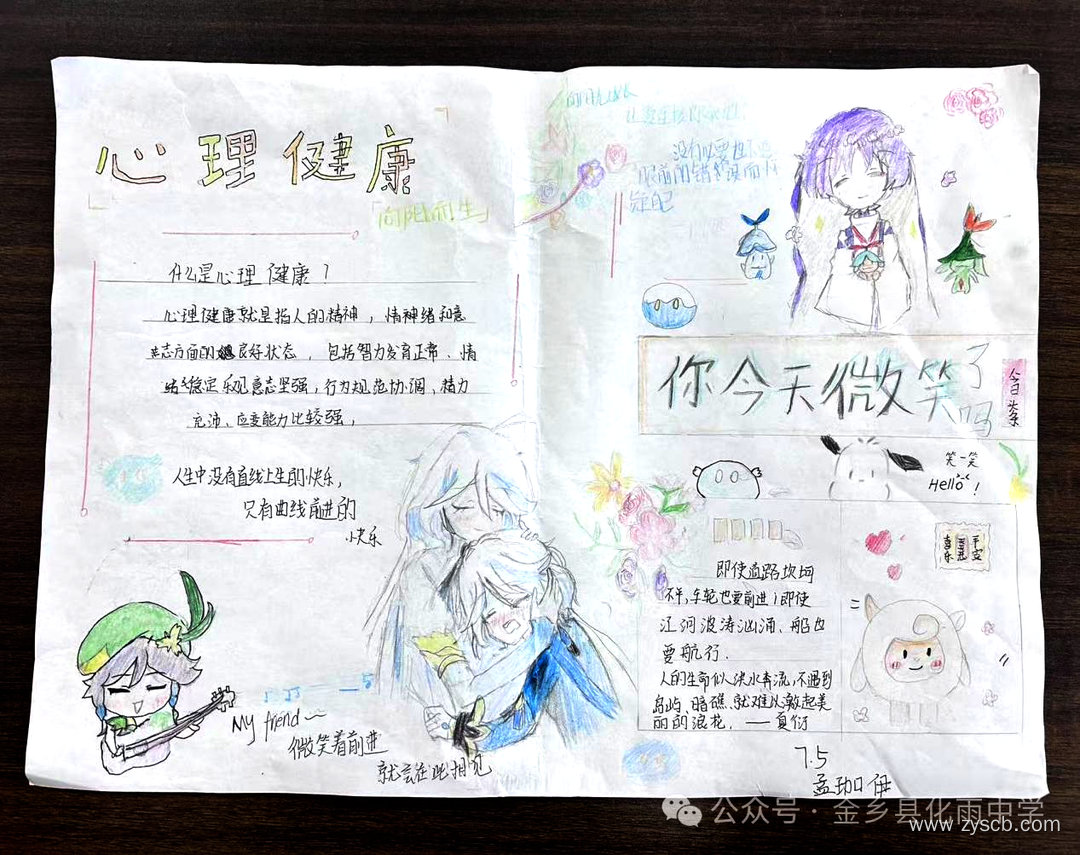 心理健康
「向阳而生」
什么是心理健康？
心理健康就是指人的精神，情神绪和意
志方面的良好状态，包括智力发育正常、情
绪稳定乐观意志坚强，行为规范协调、精力
充沛、应变能力比较强，
人生中没有直线上生的快乐，
只有曲线前进的
快乐
My frend~
微笑着前进
就会在此相见
没有必要
你今天微笑了吗
今日头条
笑一笑
Hello !
喜乐
平安
即使道路坎坷
不平，车轮也要前进！即使
江河波涛汹涌、船也
要航行．
人的生命似洪水奔流，不遇到
岛屿、暗礁、就难以激起美
丽的浪花．——
7.5
公众号 · 金乡县化雨中学
www.zyscb.com